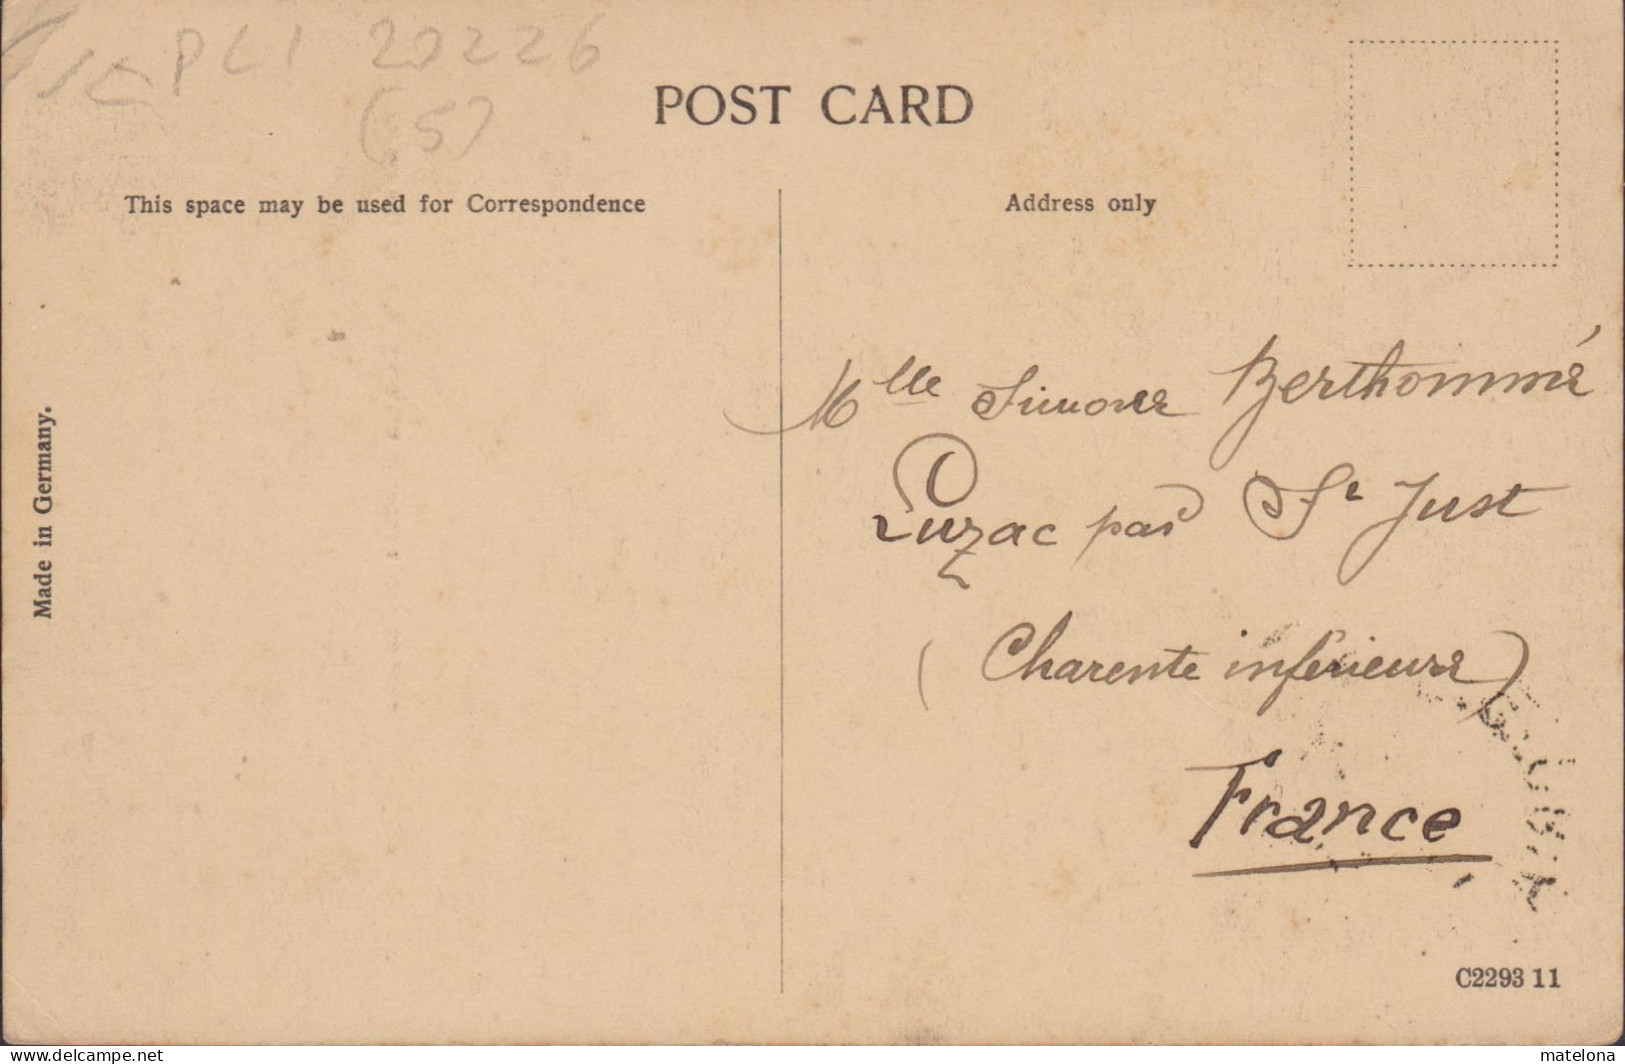 PLI 20226
(5)
POST CARD
This space may be used for Correspondence
Address only
Made in Germany.
Mlle Simone Berthommé
Luzac par St Just
(Charente inférieure)
France
C2293 11
www.delcampe.net
matelona